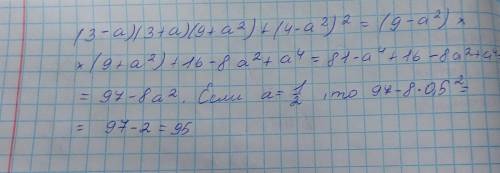 (3-a)(3+a)(9+a²)+(4-a²)² = (9-a²)×
×(9+a²)+16-8a²+a⁴=81-a⁴+16-8a²+a⁴
= 97-8a². Если a=1/2, то 97-8·0,5²=
= 97-2=95